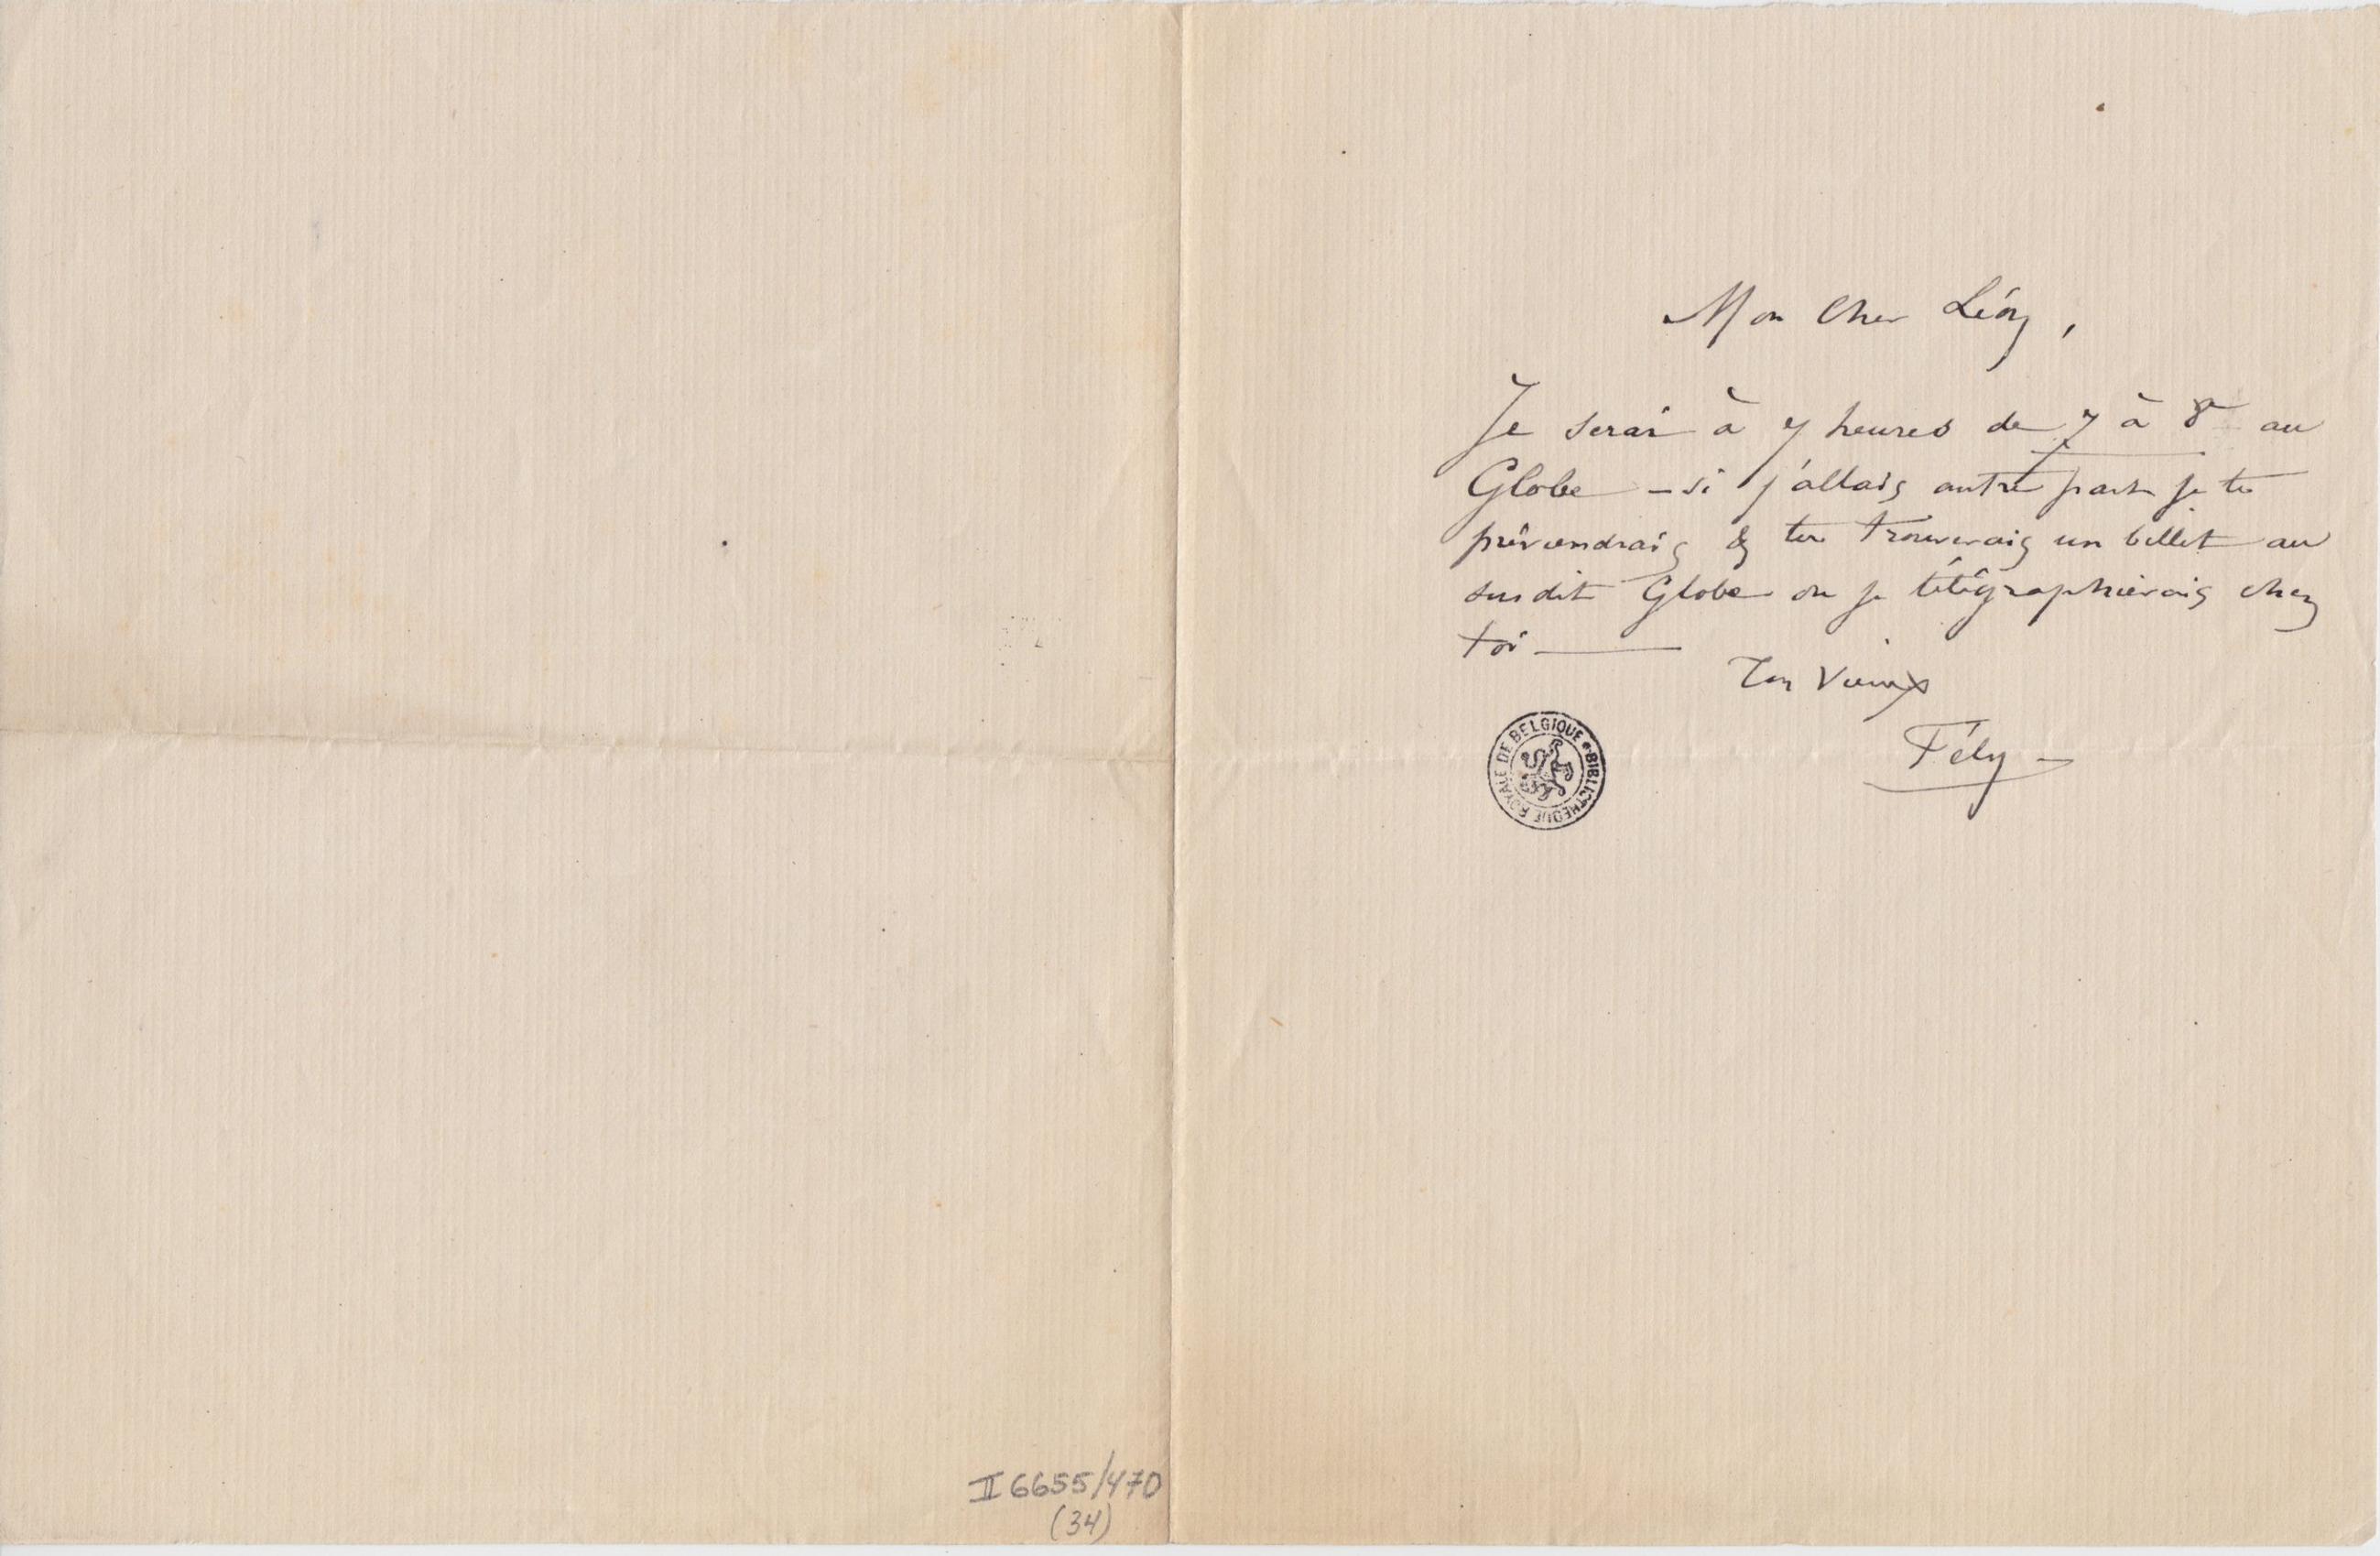 Mon Cher Léon,
Je serai à 7 heures de 7 à 8 au
Globe – si j'allais autre part je te
préviendrais & tu trouverais un billet au
susdit Globe ou je télégraphierais chez
toi ——
Ton Vieux
Fély –
BIBLIOTHEQUE ROYALE DE BELGIQUE
II 6655/470
(34)